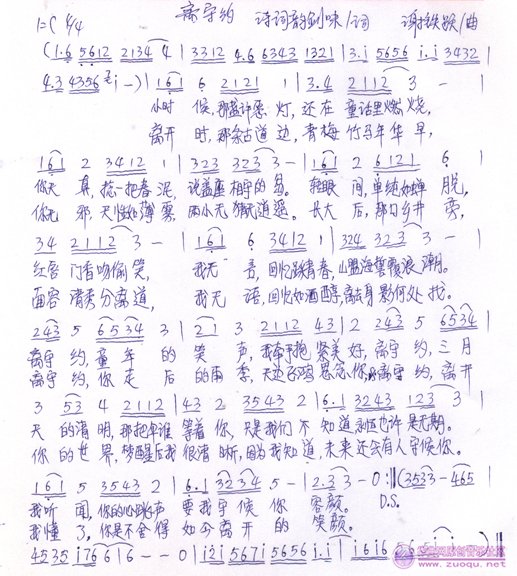 1=C 4/4 离守约 诗词韵剑味/词 谢铁跃/曲
(1.6 5612 2134 4 | 3312 4.6 6343 1321 | 3.i 5656 i.i 3432
4.3 4356 i — ) | 161 6 2121 1 | 3.4 2112 3 —
小时 候,那盏许愿 灯,还在 童话里燃烧,
离开 时,那条古道 边,青梅 竹马年华 早,
161 2 3412 1 | 323 323 3 — | 161 2 6121 6 |
你天 真,捻一把春 泥,说盖座相守的岛。转眼 间,单纯如蝉 脱,
你无 邪,天性如薄 雾,两小无猜无逍遥。长大 后,那口乡井 旁,
34 2112 3 — | 161 6 3412 1 | 324 323 3 — |
红唇 门香吻偷 笑, 我无 言,回忆跌青春,山盟海誓覆浪 潮。
面容 清秀分离 道, 我无 语,回忆如酒醇,离去身影何处 找。
243 5 6534 3 | 21 3 2112 43 | 2 243 5 6534 |
离守 约,童年 的 笑 声,我牵手抱 紧美 好,离守 约,三月
离守 约,你走 后 的雨 季,离守 约,离开
3 53 4 2112 | 43 2 3543 2 | 6.1 3243 123 3 |
天 的清 明,那把伞谁 等着 你,只是我们 不 知道 也许 是无期。
你 的世 界,梦醒后我 很清 晰,因为我知 道,未来 还会有人 守候你。
161 5 3543 2 | 6.1 3234 5 — | 2.3 3 — 0 :|| (3533 — 465
我听 闻,你的心跳 声 要我 守候 你 容颜。 D.S.
我懂 了,你是不舍 得 如今 离开 的 笑颜。
4535 i76 6 | 6 — — 0 | i2i 5671 5656 i.i | i6i6
www.zuoqu.net